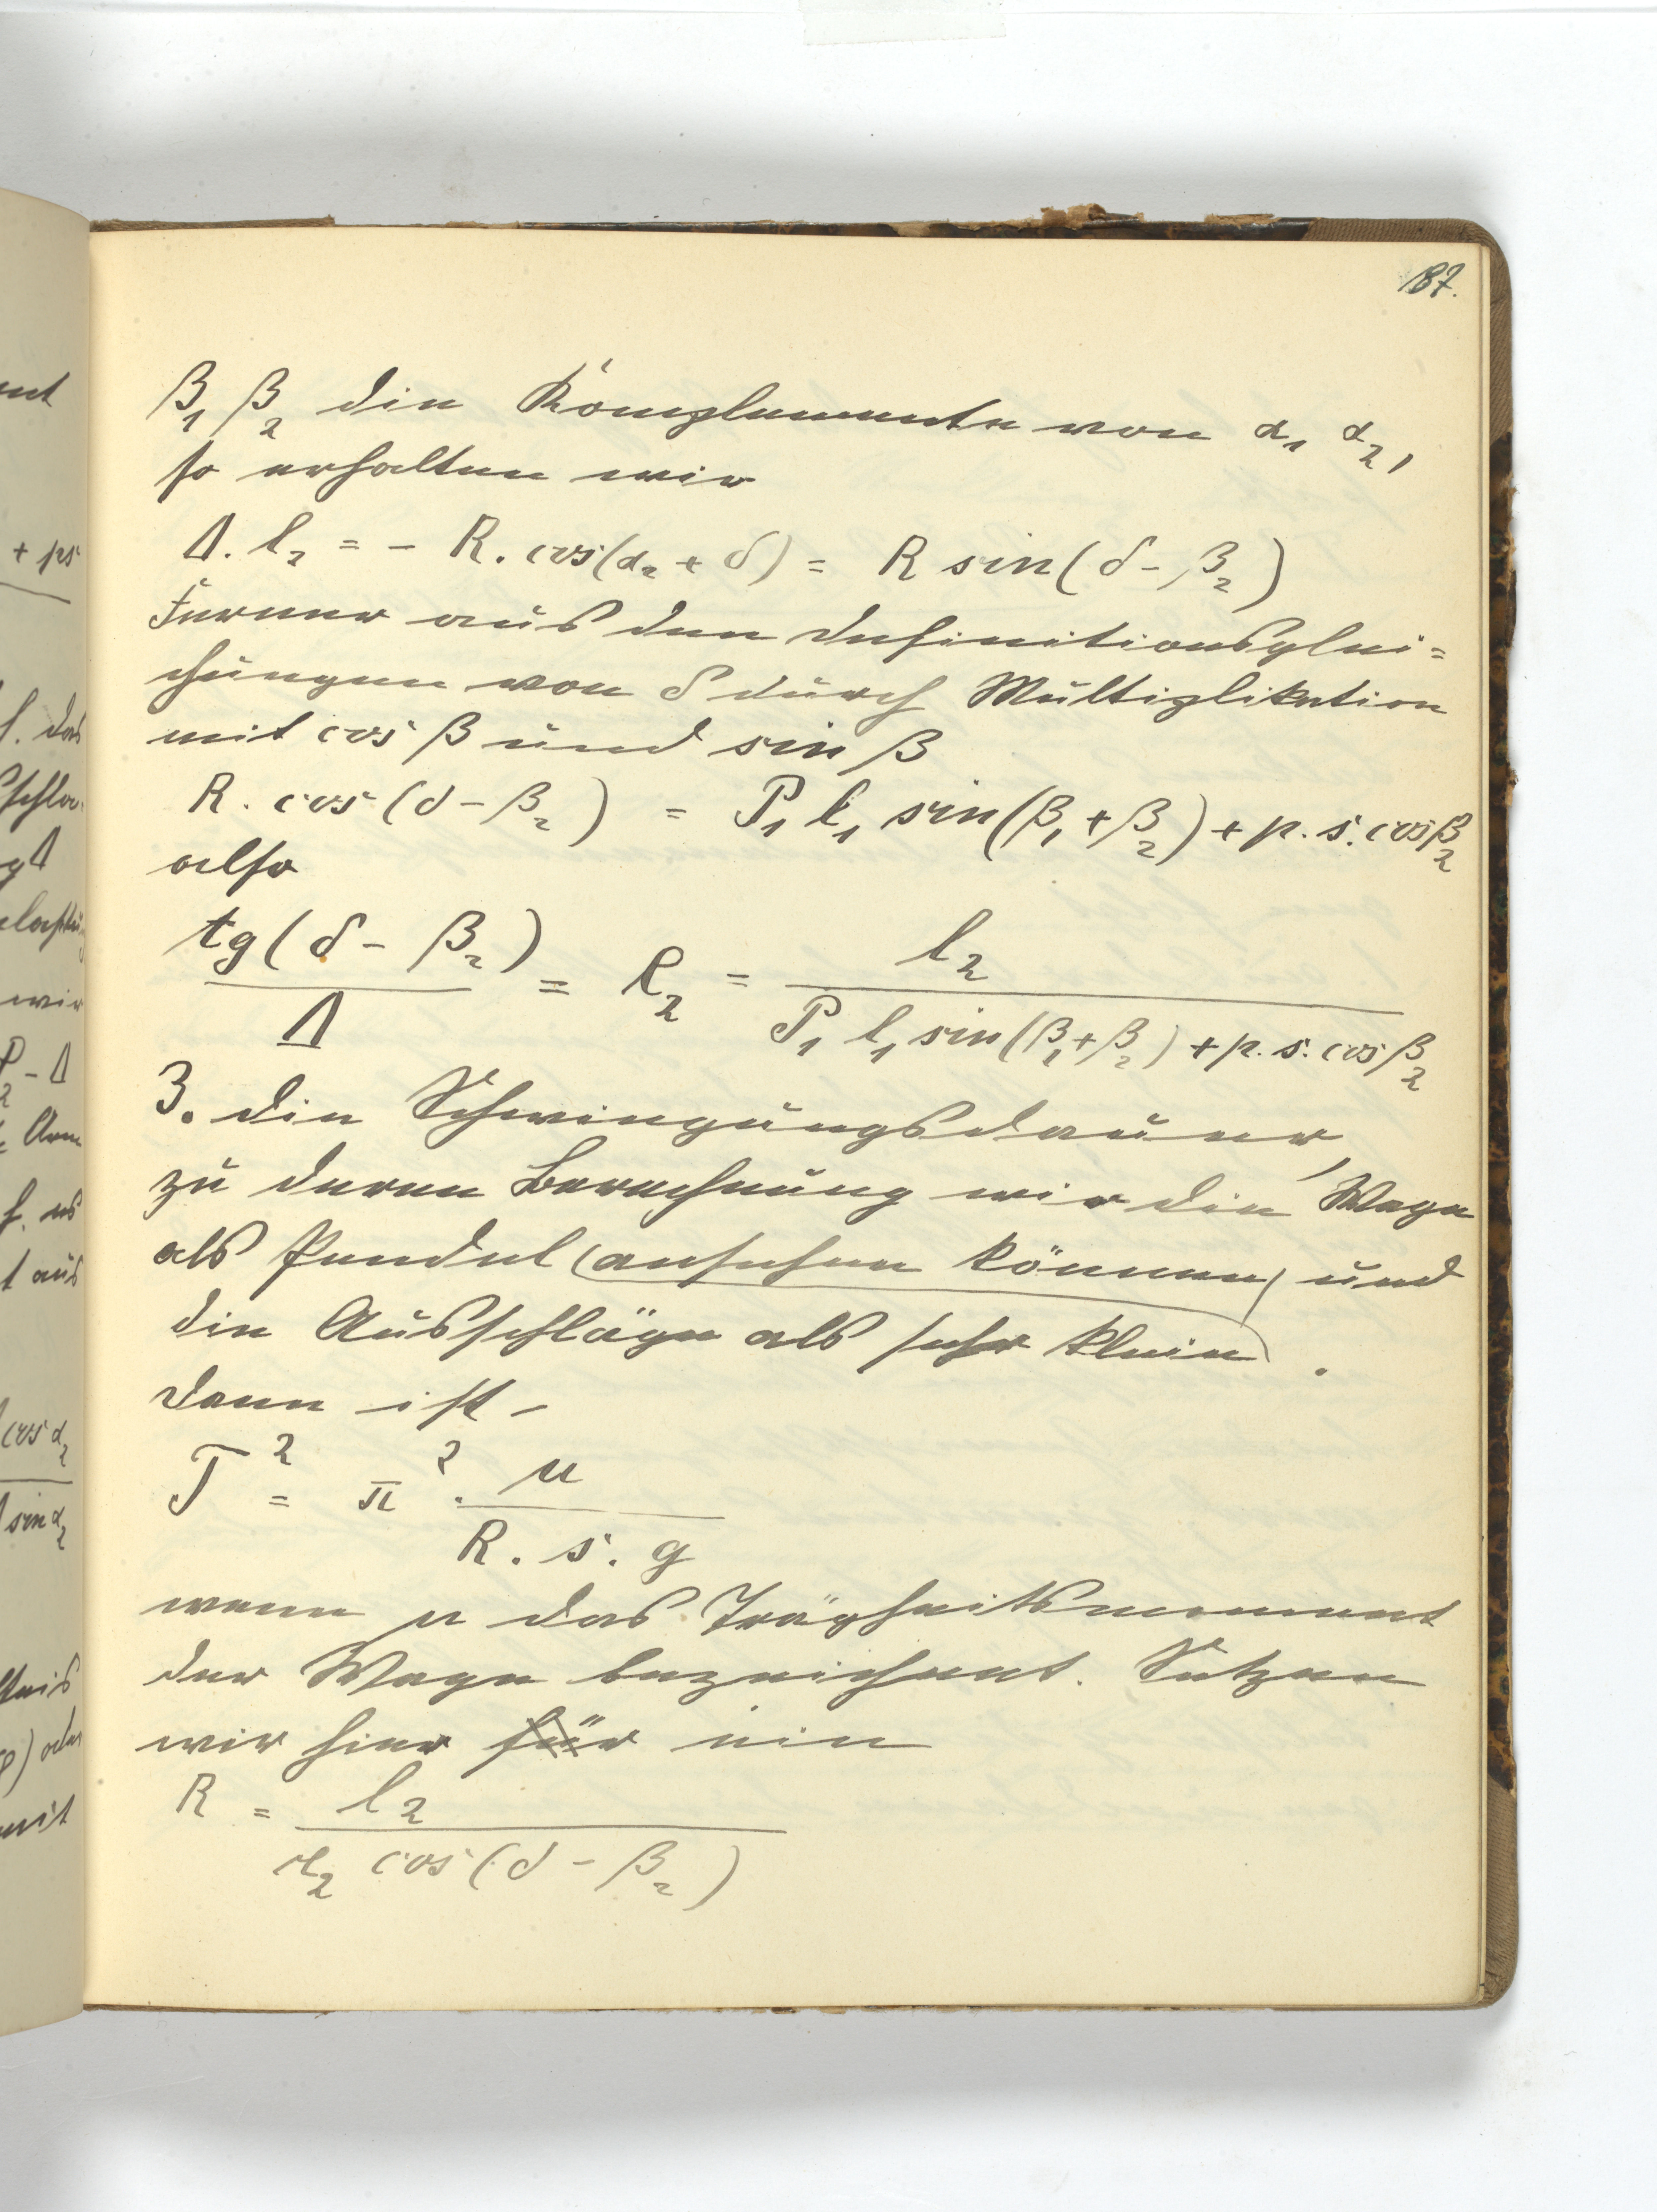 187.
β₁ β₂ die Komplemente von α₁ α₂,
so erhalten wir
Δ. l₂ = - R. cos(α₂ + δ) = R sin(δ - β₂)
Ferner aus den Definitionsglei=
chungen von δ durch Multiplikation
mit cos β und sin β
R. cos (δ - β₂) = P₁ l₁ sin(β₁ + β₂) + p. s. cos β₂
also
tg(δ - β₂) / Δ = ε₂ = l₂ / P₁ l₁ sin(β₁ + β₂) + p. s. cos β₂
3. die Schwingungsdauer,
zu deren Berechnung wir die Wage
als Pendel (ansehen können) und
die Ausschläge als sehr klein.
dann ist
T² = π² . μ / R. s. g
wenn μ das Trägheitsmoment
der Wage bezeichnet. Setzen
wir hier für ein
R = l₂ / ε₂ cos(δ - β₂)
ent
+ ps
f. das
wir
cos α₂
sin α₂
mit